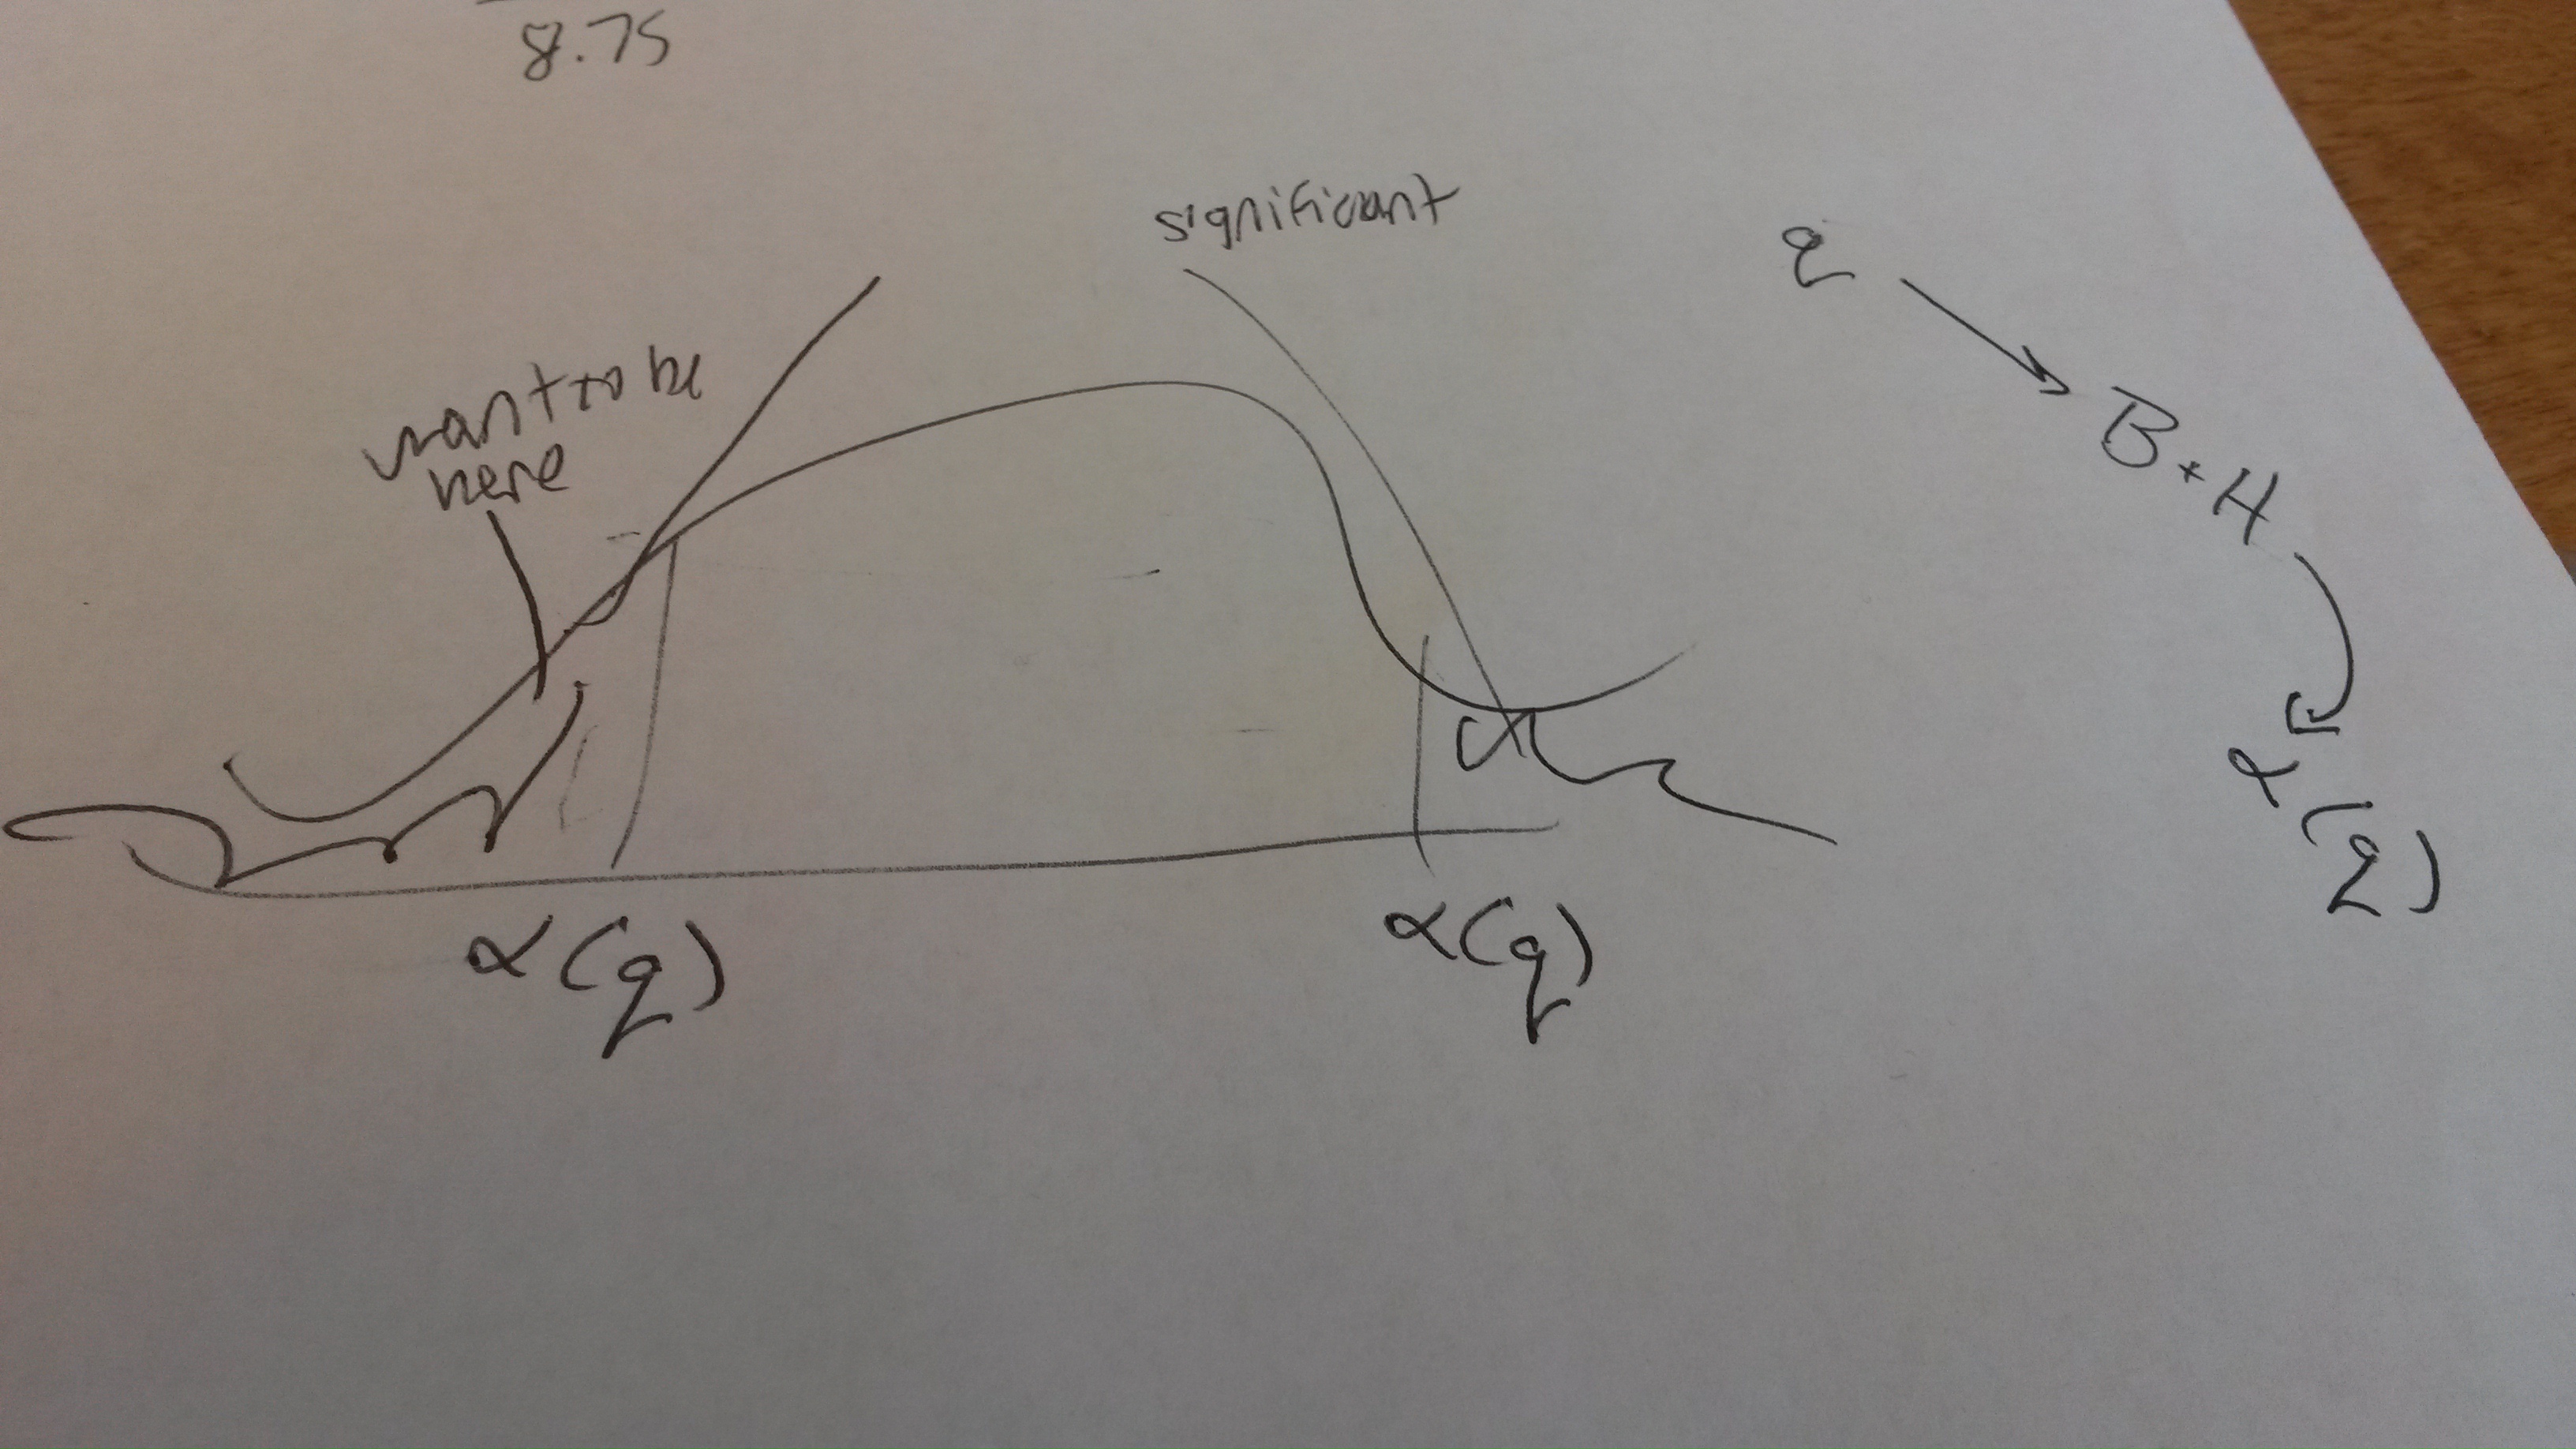 8.75
significant
want to be
here
q
B+H
α(q)
α(q)
α(q)